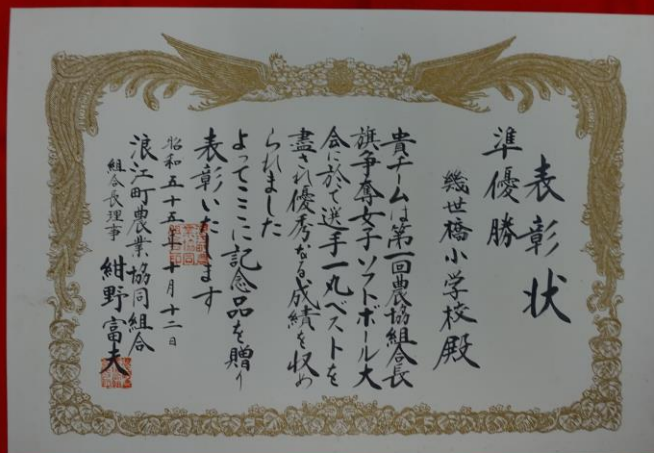 表彰状
準優勝
幾世橋小学校殿
貴チームは第一回農協組合長
旗争奪女子ソフトボール大
会に於て選手一丸ベストを
盡され優秀なる成績を収め
られました
よってここに記念品を贈り
表彰いたします
昭和五十五年十月十二日
浪江町農業協同組合
組合長理事 紺野富夫